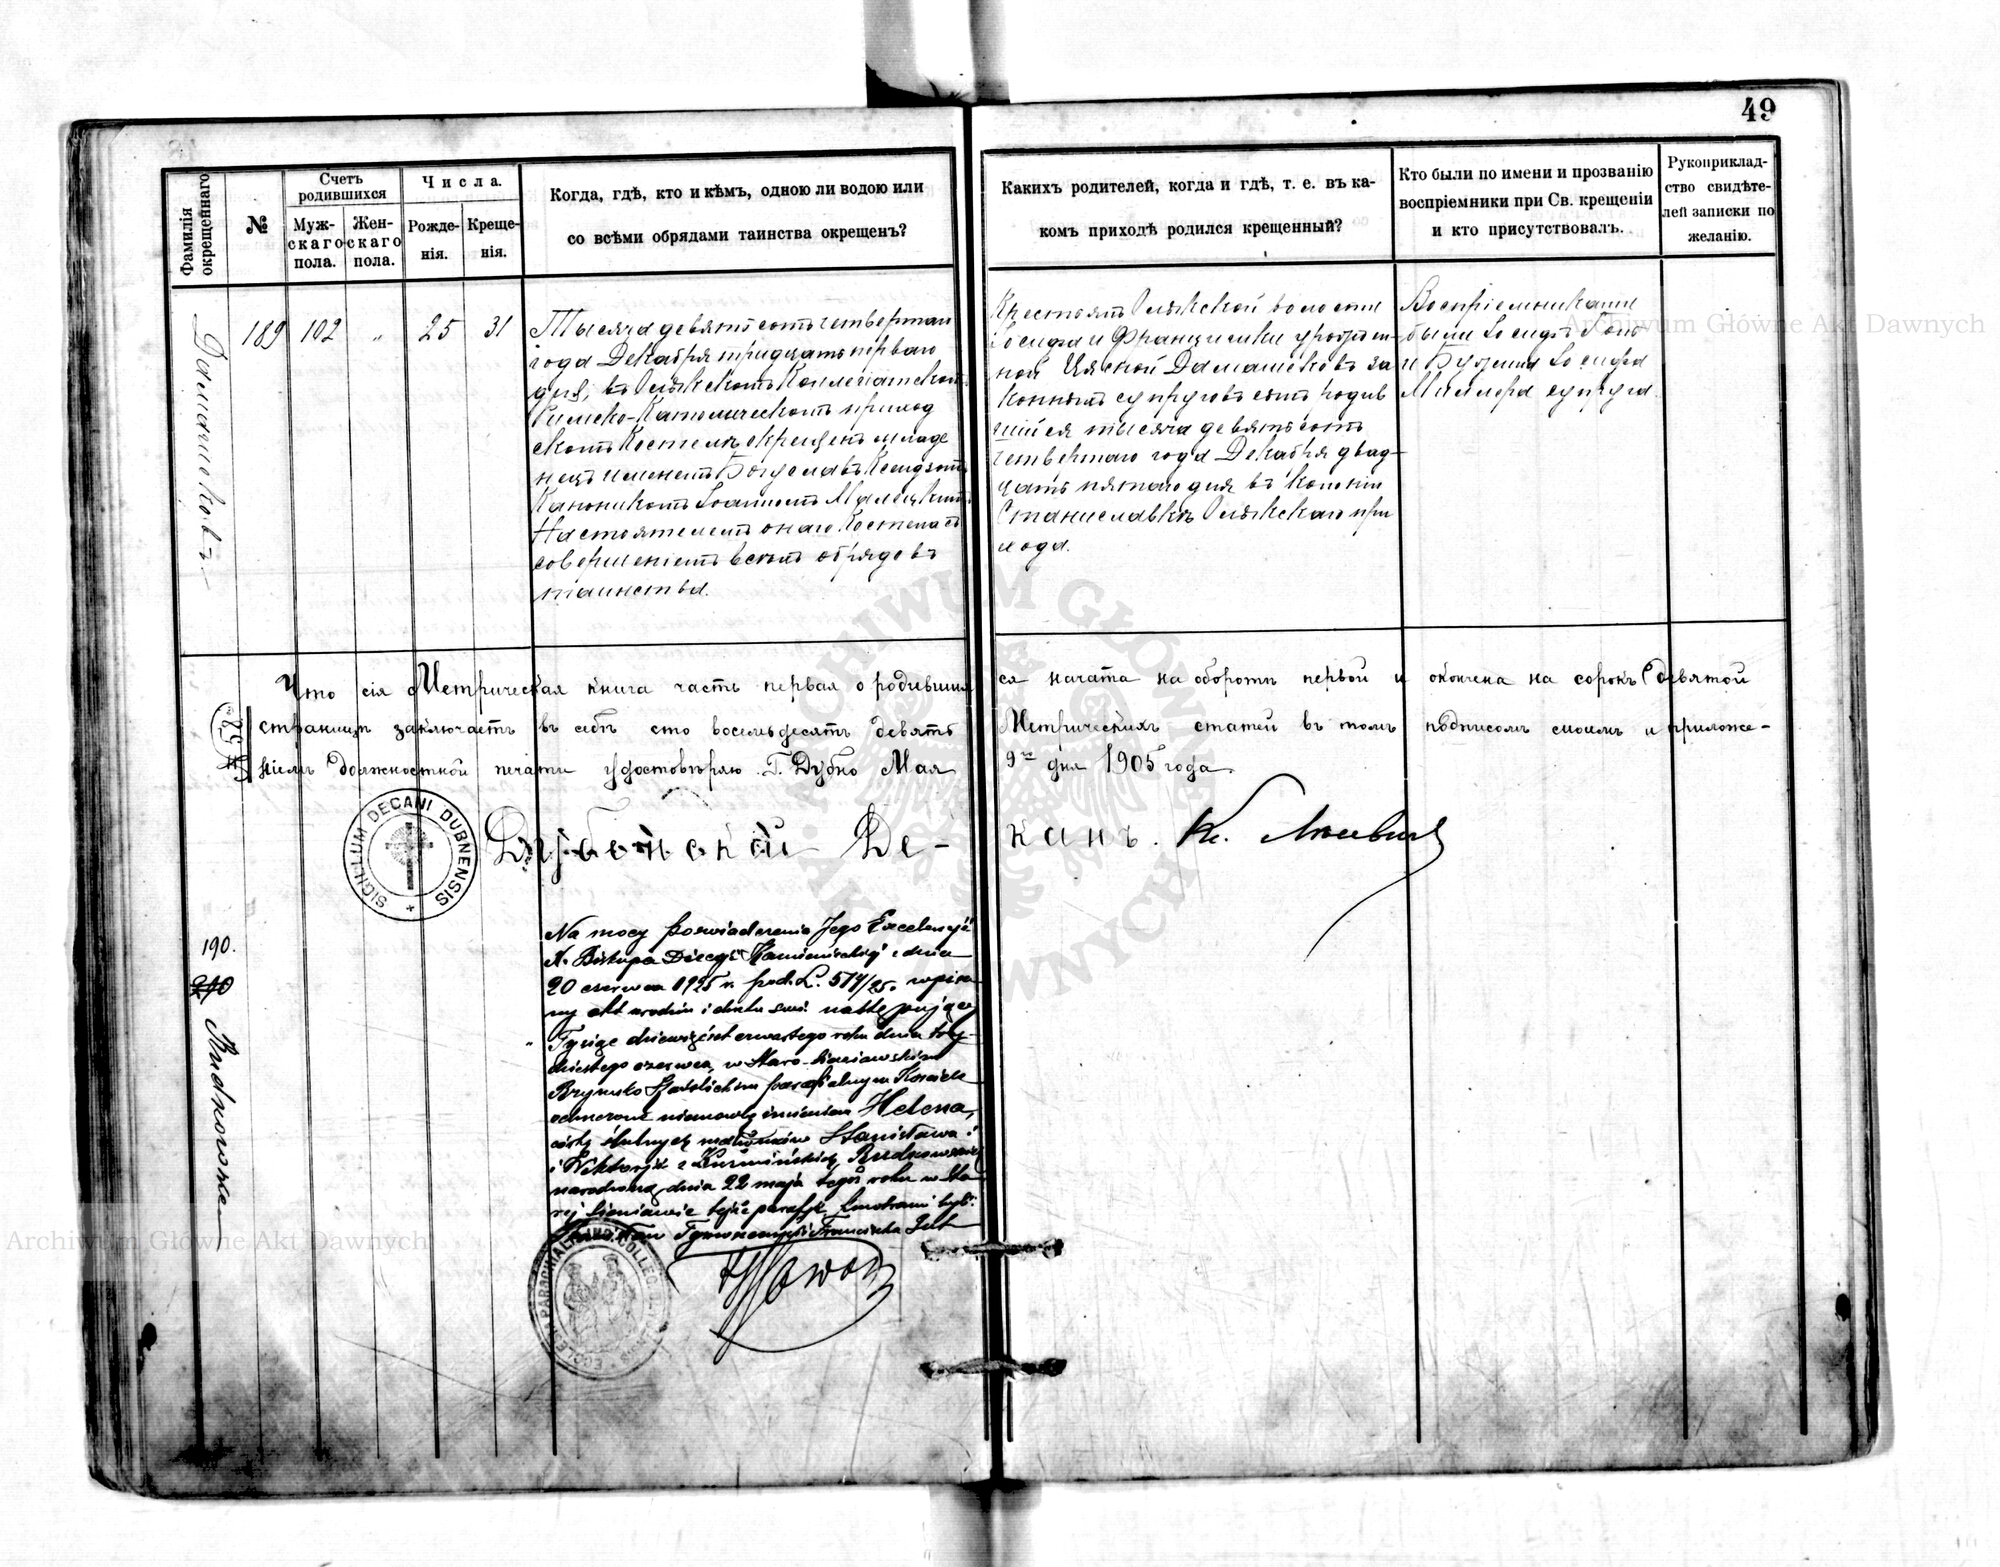 49
Фамилія окрещеннаго
№
Счетъ родившихся
Мужскаго пола.
Женскаго пола.
Числа.
Рожденія.
Крещенія.
Когда, гдѣ, кто и кѣмъ, одною ли водою или
со всѣми обрядами таинства окрещенъ?
Какихъ родителей, когда и гдѣ, т. е. въ ка-
комъ приходѣ родился крещенный?
Кто были по имени и прозванію
воспріемники при Св. крещеніи
и кто присутствовалъ.
Рукоприклад-
ство свидѣте-
лей записки по
желанію.
Домашоковъ
189 102 " 25 31
Тысяча девятьсотъ четвертаго
года Декабря тридцать перваго
дня, въ Олыкскомъ Коллегіатскомъ
Римско-Католическомъ приход
скомъ Костелѣ окрещенъ младе
нецъ именемъ Богуславъ Ксендзомъ
Каноникомъ Іоанномъ
Настоятелемъ онаго Костела съ
совершеніемъ всѣхъ обрядовъ
таинства.
Крестьянъ Олыкской волости
Іосифа и Франциски урожден-
ной Домашоковъ за
конныхъ супруговъ сынъ родив
шійся тысяча девятьсотъ
четвертаго года Декабря двад-
цать пятаго дня въ Колоніи
Станиславкѣ Олыкскаго при
хода.
Воспріемниками
были Іосифъ
и Іосифа
Миллера супруга.
Что сія Метрическая книга часть первая о родившихся начата на оборотѣ первой и окончена на сорокъ девятой
страницѣ заключаетъ въ себѣ сто восемьдесятъ девять Метрическихъ статей въ томъ подписомъ моимъ и приложе-
ніемъ должностной печати удостовѣряю. Г. Дубно Мая 9го дня 1905 года.
SIGILLUM DECANI DUBNENSIS
Дубенскій Деканъ. Кс.
190.
Rudkowska
Na mocy poświadczenia Jego Excelencji
X. Biskupa Diecezji Kamienieckiej z dnia
20 czerwca 1925 r. pod L. 514/25. wpisa
ny akt urodzin i chrztu św. następujący
"Tysiąc dziewięćset czwartego roku dnia trzy-
dziestego czerwca, w Staro-Sieniawskim
Rzymsko Katolickim parafialnym Kościele
ochrzczono niemowlę imieniem Helena,
córkę ślubnych małżonków Stanisława i
i Wiktorji z Rudkowskich
narodzoną dnia 22 maja tegoż roku w Sta
rej Sieniawie tejże parafji. Kmotrami byli:
Franciszka
Archiwum Główne Akt Dawnych
Archiwum Główne Akt Dawnych
ARCHIWUM GŁÓWNE AKT DAWNYCH